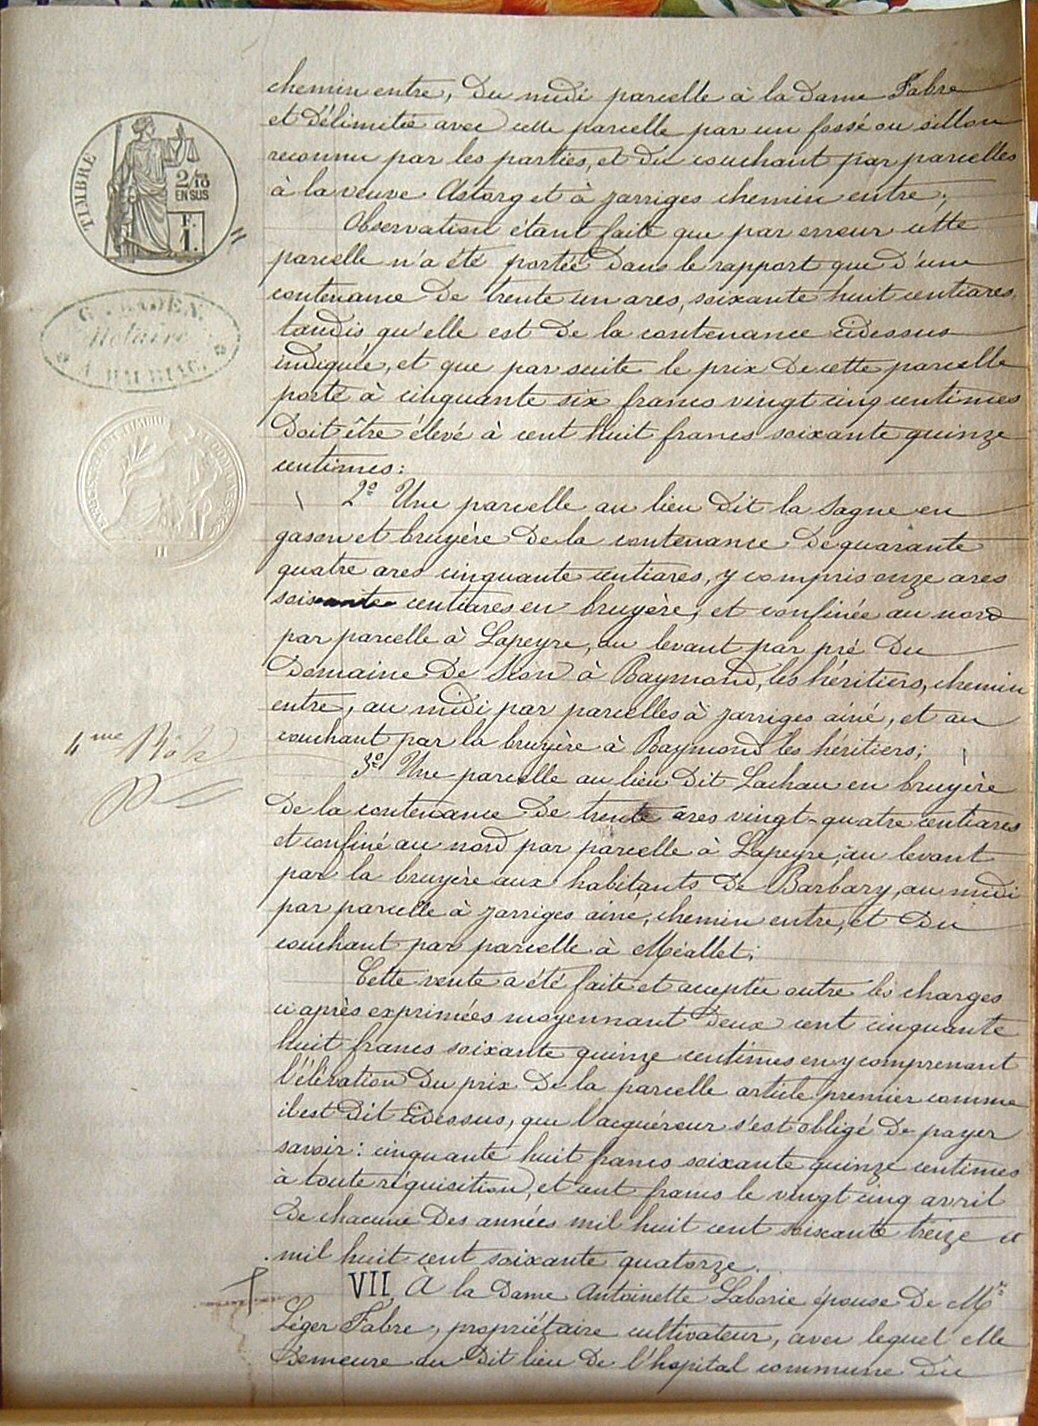 chemin entre, du midi parcelle à la Dame Fabre
et délimitée avec cette parcelle par un fossé ou sillon
reconnu par les parties, et du couchant par parcelles
à la veuve Astorg et à Jarriges chemin entre;
Observation étant faite que par erreur cette
parcelle n'a été portée dans le rapport que d'une
contenance de trente un ares, soixante huit centiares,
tandis qu'elle est de la contenance cidessus
indiquée, et que par suite le prix de cette parcelle
porté à cinquante six francs vingt cinq centimes
doit être élevé à cent huit francs soixante quinze
centimes:
2º Une parcelle au lieu dit la Sagne en
gason et bruyère de la contenance de quarante
quatre ares cinquante centiares, y compris onze ares
soixante centiares en bruyère, et confinée au nord
par parcelle à Lapeyre, au levant par pré du
Domaine de à Raymond, les héritiers, chemin
entre, au midi par parcelles à Jarriges ainé, et au
couchant par la bruyère à Raymond les héritiers;
3º Une parcelle au lieu dit Lachau en bruyère
de la contenance de trente ares vingt-quatre centiares
et confiné au nord par parcelle à Lapeyre, au levant
par la bruyère aux habitants de Barbary, au midi
par parcelle à Jarriges ainé, chemin entre, et du
couchant par parcelle à Méallet;
Cette vente a été faite et acceptée outre les charges
ci après exprimées moyennant deux cent cinquante
huit francs soixante quinze centimes en y comprenant
l'élévation du prix de la parcelle article premier comme
il est dit cidessus, que l'acquéreur s'est obligé de payer
savoir: cinquante huit francs soixante quinze centimes
à toute réquisition, et cent francs le vingt cinq avril
de chacune des années mil huit cent soixante treize et
mil huit cent soixante quatorze.
VII À la dame Antoinette Laborie épouse de Mr
Léger Fabre, propriétaire cultivateur, avec lequel elle
demeure au dit lieu de l'hopital commune du
TIMBRE
2/10
EN SUS
F.
1.
Notaire
4me Rôle